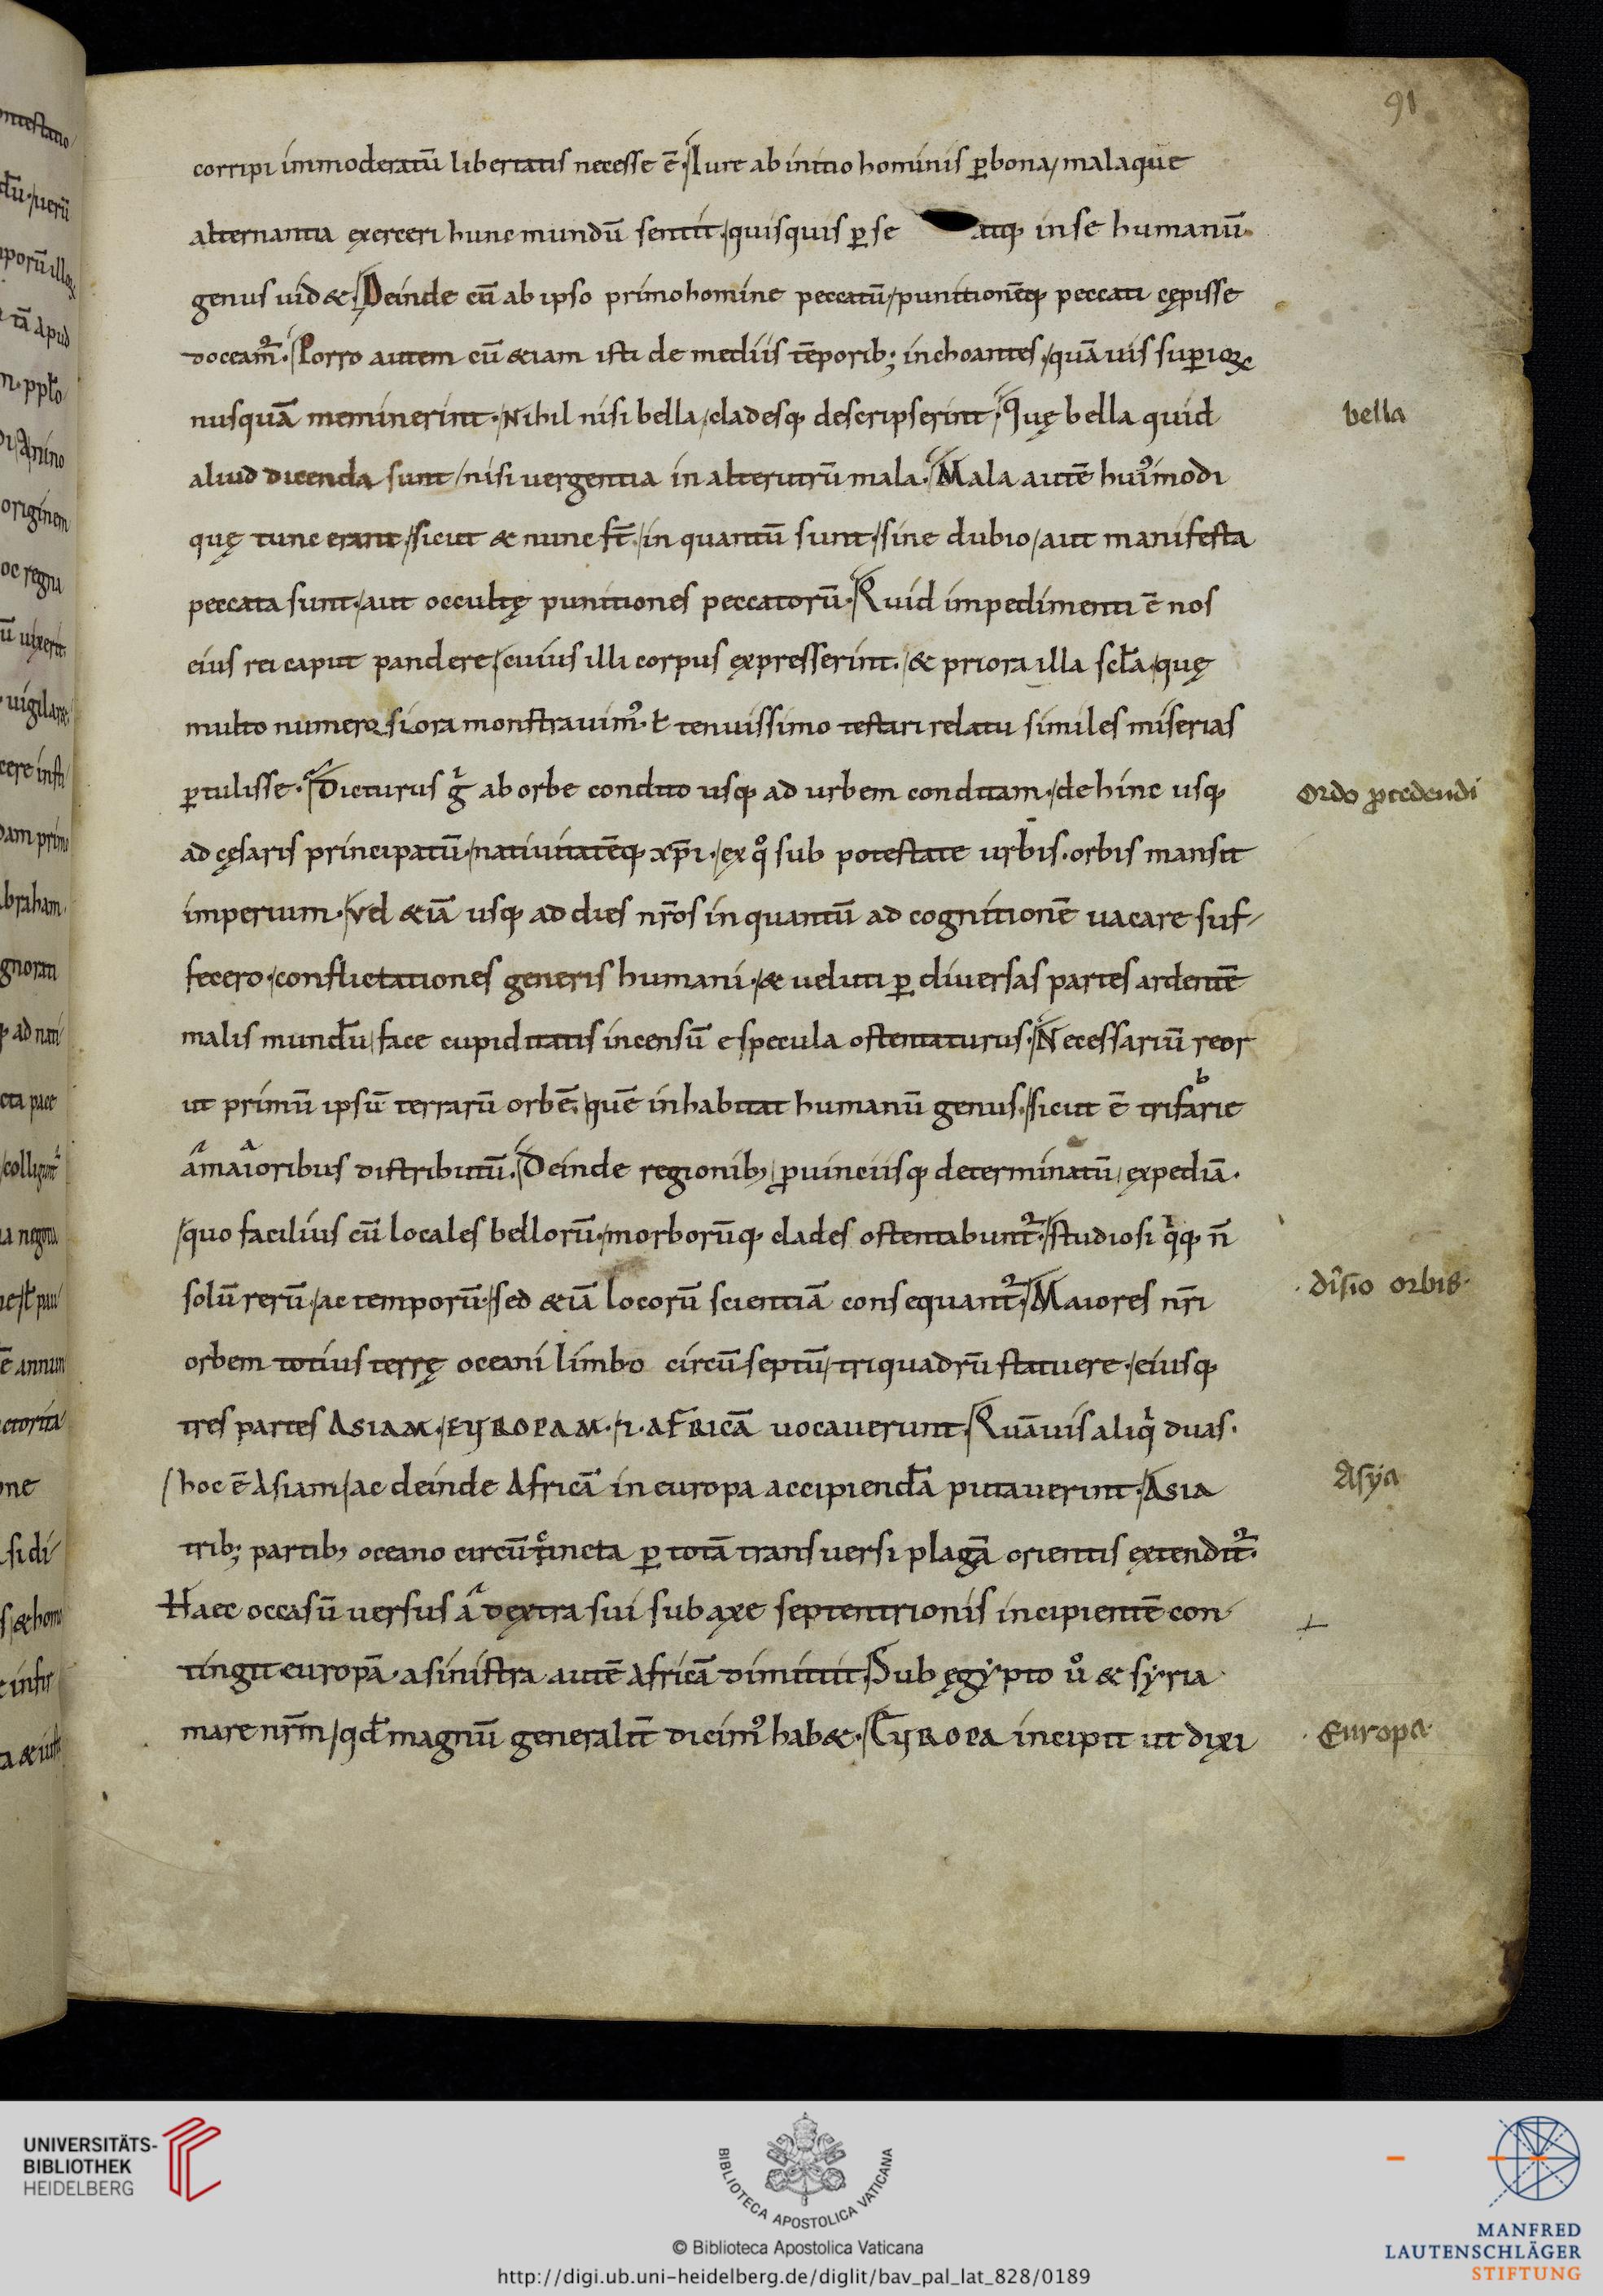 91
corripi immoderatū libertatis necesse ē. Iure ab initio hominis ꝑ bona, malaque
alternantia exerceri hunc mundū sentit, quisquis ꝑ se atq; in se humanū
genus uid&. Deinde cū ab ipso primo homine peccatū, punitionēq; peccati cępisse
doceam᷒. Porro autem cū &iam isti de mediis tēporib; inchoantes, quāuis superiorꝝ
nusquā meminerint. Nihil nisi bella, cladesq; descripserint. Quę bella quid
bella
aliud dicenda sunt, nisi vergentia in alterutrū mala. Mala autē hui᷒modi
quę tunc erant, sicut & nunc st̄, in quantū sunt, sine dubio, aut manifesta
peccata sunt, aut occultę punitiones peccatorū. Quid impedimenti ē nos
eius rei caput pandere, cuius illi corpus expresserint, & priora illa scl̄a, quę
multo numerosiora monstrauim᷒. ł tenuissimo testari relatu similes miserias
ꝑtulisse. Dicturus gͥ ab orbe condito usq; ad urbem conditam, dehinc usq;
Ordo ꝓcedendi
ad cęsaris principatū, natiuitatēq; xp̄i, ex qͦ sub potestate urbis. orbis mansit
imperium. Vel &iā usq; ad dies nr̄os in quantū ad cognitionē uacare suf-
fecero, conflictationes generis humani, & veluti ꝑ diuersas partes ardentē
malis mundū, face cupiditatis incensū e specula ostentaturus. Necessariū reor
ut primū ipsū terrarū orbē, quē inhabitat humanū genus, sicut ē trifarie
b
a maioribus distributū. Deinde regionib; ꝓuinciisq; determinatū, expediā.
quo facilius cū locales bellorū, morborūq; clades ostentabunt᷑, studiosi qͥq; n̄
solū rerū, ac temporū, sed &iā locorū scientiā consequant᷑. Maiores nr̄i
. diuisio orbis.
orbem totius terrę oceani limbo circūseptū, triquadrū statuere, eiusq;
tres partes ASIAM, EUROPAM. ⁊. AFRICĀ uocauerunt. Quāuis aliqͥ duas.
hoc ē Asiam, ac deinde Africā in europa accipiendā putauerint. Asia
Asÿa
trib; partib; oceano circūcincta ꝑ totā transuersi plagā orientis extendit᷑.
Haec occasū uersus a dextra sui sub axe septentrionis incipientē con-
tingit europā. a sinistra autē Africā dimittit. Sub ęgypto uͦ & syria
mare nr̄m, qd̄ magnū generalit̄ dicim᷒ hab&. EUROPA incipit ut dixi
. Europa.
UNIVERSITÄTS-
BIBLIOTHEK
HEIDELBERG
BIBLIOTECA APOSTOLICA VATICANA
© Biblioteca Apostolica Vaticana
http://digi.ub.uni-heidelberg.de/diglit/bav_pal_lat_828/0189
MANFRED
LAUTENSCHLÄGER
STIFTUNG